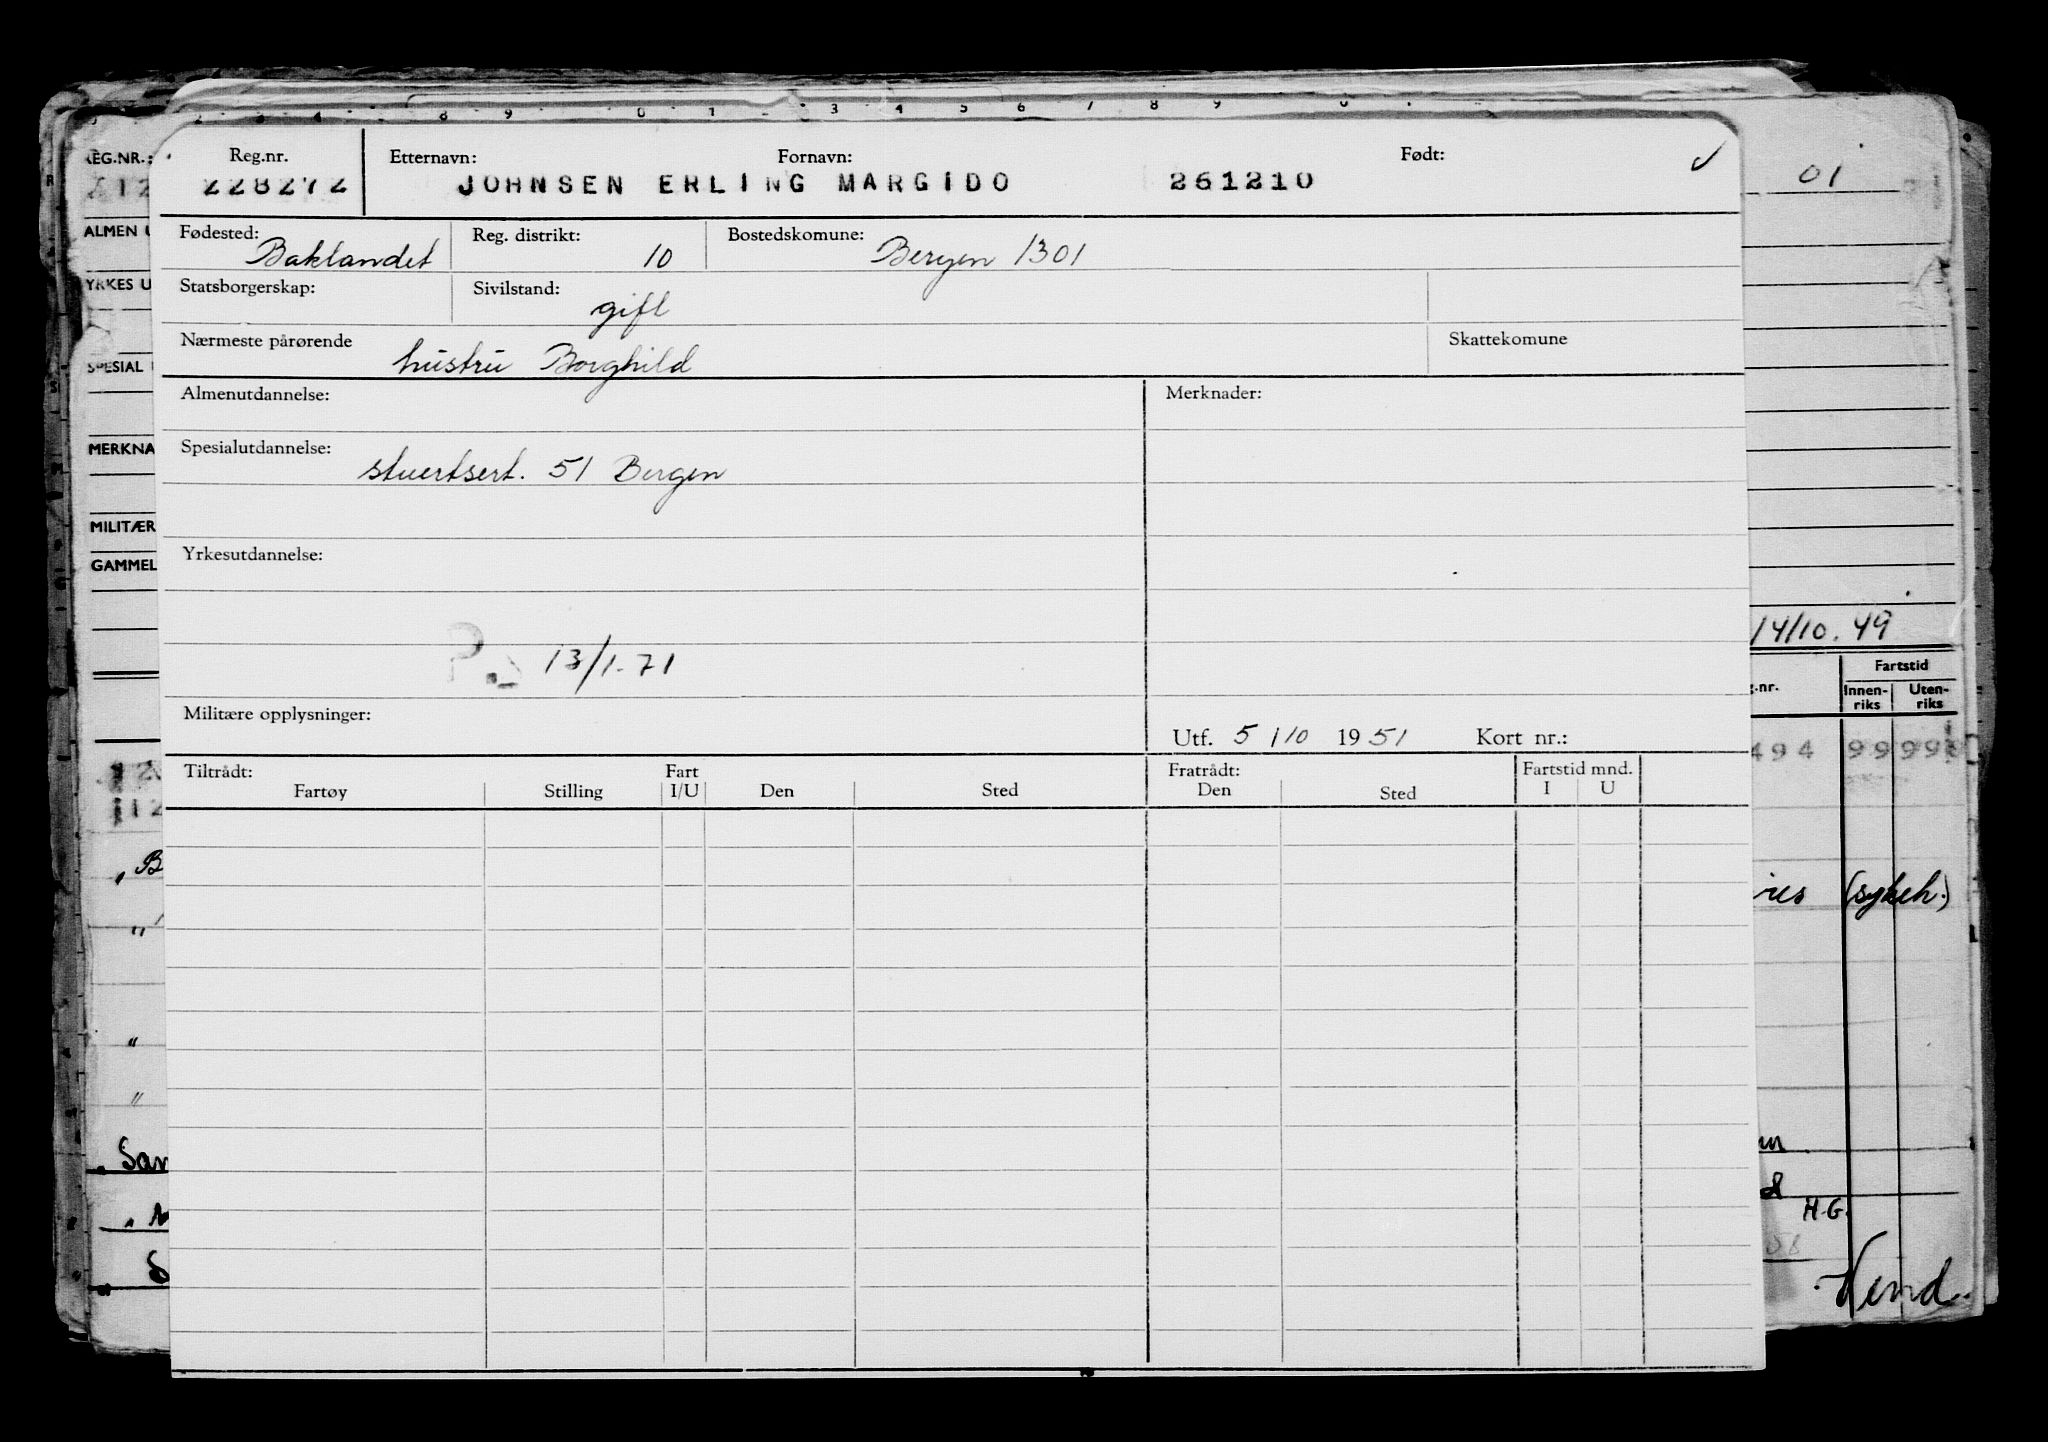 8 9 0 1 3 4 5 6 7 8 9
Reg.nr. Etternavn: Fornavn: Født:
228272 JOHNSEN ERLING MARGIDO 261210
Fødested: Baklandet Reg. distrikt: 10 Bostedskomune: Bergen 1301
Statsborgerskap: Sivilstand: gift
Nærmeste pårørende hustru Borghild Skattekomune
Almenutdannelse: Merknader:
Spesialutdannelse: stuertsert. 51 Bergen
Yrkesutdannelse:
13/1-71
Militære opplysninger: Utf. 5/10 1951 Kort nr.:
Tiltrådt: Fart Fratrådt: Fartstid mnd.
Fartøy Stilling I/U Den Sted Den Sted I U
REG.NR.:
ALMEN U
YRKES U
SPESIAL
MERKNA
MILITÆR
GAMMEL
01
14/10.49
g.nr. Fartstid
Innen-riks Uten-riks
494 99 99
(sykeh.)
H.G.
Vend